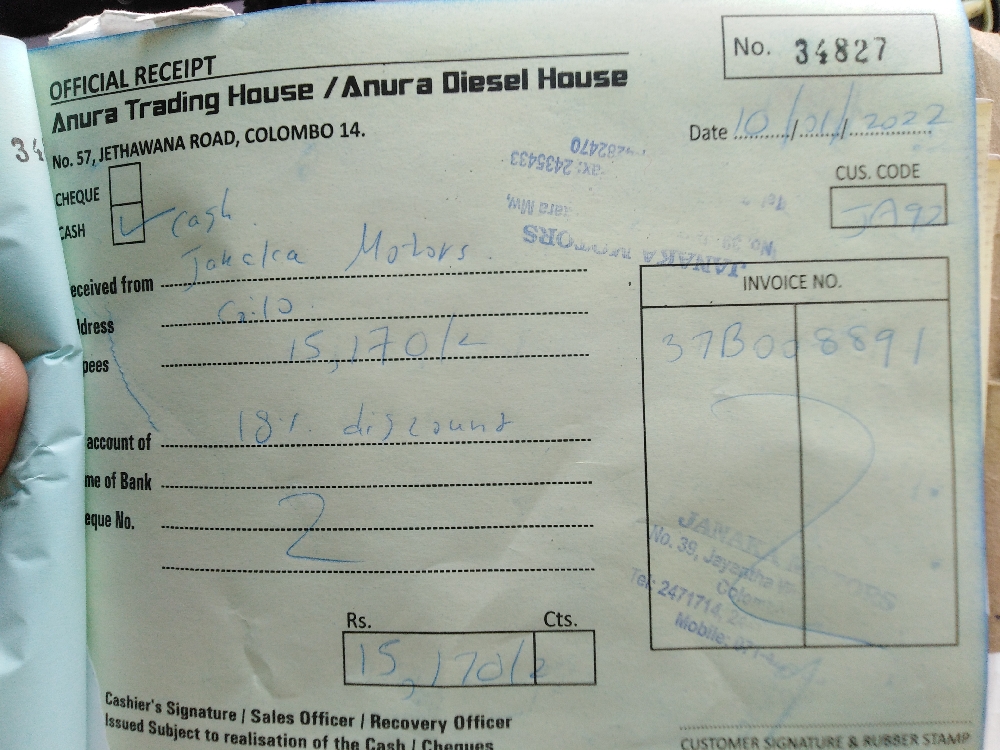 OFFICIAL RECEIPT
No. 34827
Anura Trading House / Anura Diesel House
No. 57, JETHAWANA ROAD, COLOMBO 14.
Date 10/01/2022
34
CHEQUE
CASH ✓ cash
CUS. CODE
JA92
JANAKA MOTORS
ax: 2435433
eceived from Janaka Motors.
INVOICE NO.
dress
pees 15,170/=
37B008891
account of 18% discount
me of Bank
eque No.
JANAKA MOTORS
No. 39, Jayantha
Tel: 2471714,
Mobile: 071-
Rs. Cts.
15,170/=
Cashier's Signature / Sales Officer / Recovery Officer
Issued Subject to realisation of the Cash / Cheques
CUSTOMER SIGNATURE & RUBBER STAMP